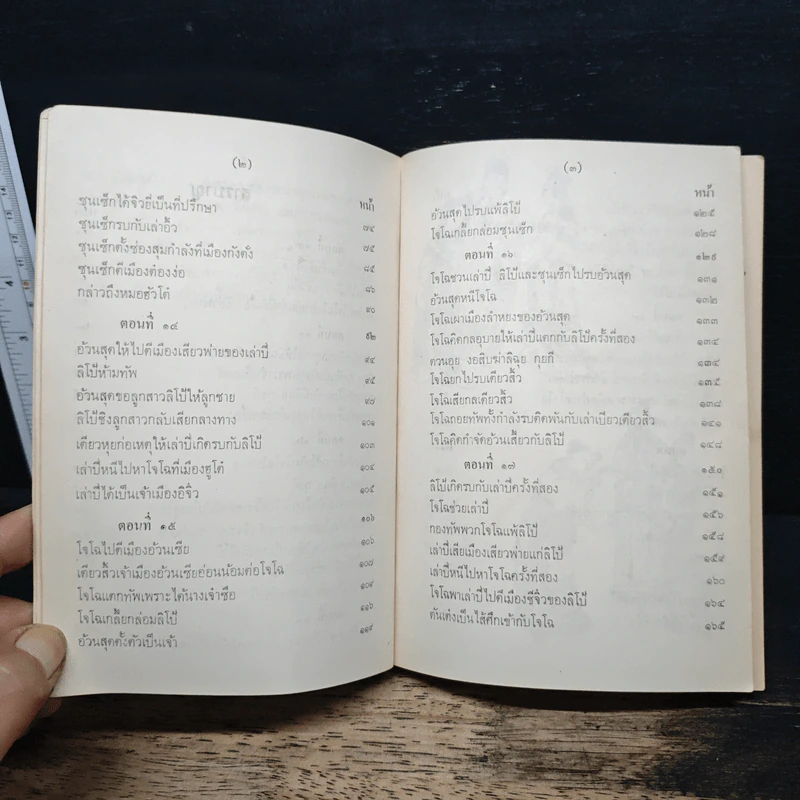 (๒)
หน้า
ซุนเซ็กได้จิวยี่เป็นที่ปรึกษา ๗๔
ซุนเซ็กรบกับเล่าอิ้ว ๗๕
ซุนเซ็กตั้งซ่องสุมกำลังที่เมืองกังตั๋ง ๘๕
ซุนเซ็กตีเมืองต๋องง่อ ๘๖
กล่าวถึงหมอฮัวโต๋ ๙๐
ตอนที่ ๑๔ ๙๒
อ้วนสุดให้ไปตีเมืองเสียวพ่ายของเล่าปี่ ๙๔
ลิโป้ห้ามทัพ ๙๕
อ้วนสุดขอลูกสาวลิโป้ให้ลูกชาย ๙๗
ลิโป้ชิงลูกสาวกลับเสียกลางทาง ๑๐๑
เตียวหุยก่อเหตุให้เล่าปี่เกิดรบกับลิโป้ ๑๐๓
เล่าปี่หนีไปหาโจโฉที่เมืองฮูโต๋ ๑๐๔
เล่าปี่ได้เป็นเจ้าเมืองอิจิ๋ว ๑๐๕
ตอนที่ ๑๕ ๑๐๖
โจโฉไปตีเมืองอ้วนเซีย ๑๐๖
เตียวสิ้วเจ้าเมืองอ้วนเซียอ่อนน้อมต่อโจโฉ ๑๐๗
โจโฉแตกทัพเพราะได้นางเจ๋าซือ ๑๐๙
โจโฉเกลี้ยกล่อมลิโป้ ๑๑๖
อ้วนสุดตั้งตัวเป็นเจ้า ๑๑๙
(๓)
หน้า
อ้วนสุดไปรบแพ้ลิโป้ ๑๒๕
โจโฉเกลี้ยกล่อมซุนเซ็ก ๑๒๘
ตอนที่ ๑๖ ๑๒๙
โจโฉชวนเล่าปี่ ลิโป้และซุนเซ็กไปรบอ้วนสุด ๑๓๑
อ้วนสุดหนีโจโฉ ๑๓๒
โจโฉเผาเมืองลำหยงของอ้วนสุด ๑๓๓
โจโฉคิดกลอุบายให้เล่าปี่แตกกับลิโป้ครั้งที่สอง ๑๓๔
ตวนอุย งอสิบฆ่าลิฉุย กุยกี ๑๓๔
โจโฉยกไปรบเตียวสิ้ว ๑๓๕
โจโฉเสียกลเตียวสิ้ว ๑๓๘
โจโฉถอยทัพทั้งกำลังรบติดพันกับเล่าเปียวเตียวสิ้ว ๑๔๑
โจโฉคิดกำจัดอ้วนเสี้ยวกับลิโป้ ๑๔๘
ตอนที่ ๑๗ ๑๕๐
ลิโป้เกิดรบกับเล่าปี่ครั้งที่สอง ๑๕๑
โจโฉช่วยเล่าปี่ ๑๕๖
กองทัพพวกโจโฉแพ้ลิโป้ ๑๕๘
เล่าปี่เสียเมืองเสียวพ่ายแก่ลิโป้ ๑๕๙
เล่าปี่หนีไปหาโจโฉครั้งที่สอง ๑๖๐
โจโฉพาเล่าปี่ไปตีเมืองชีจิ๋วของลิโป้ ๑๖๔
ตันเต๋งเป็นไส้ศึกเข้ากับโจโฉ ๑๖๕